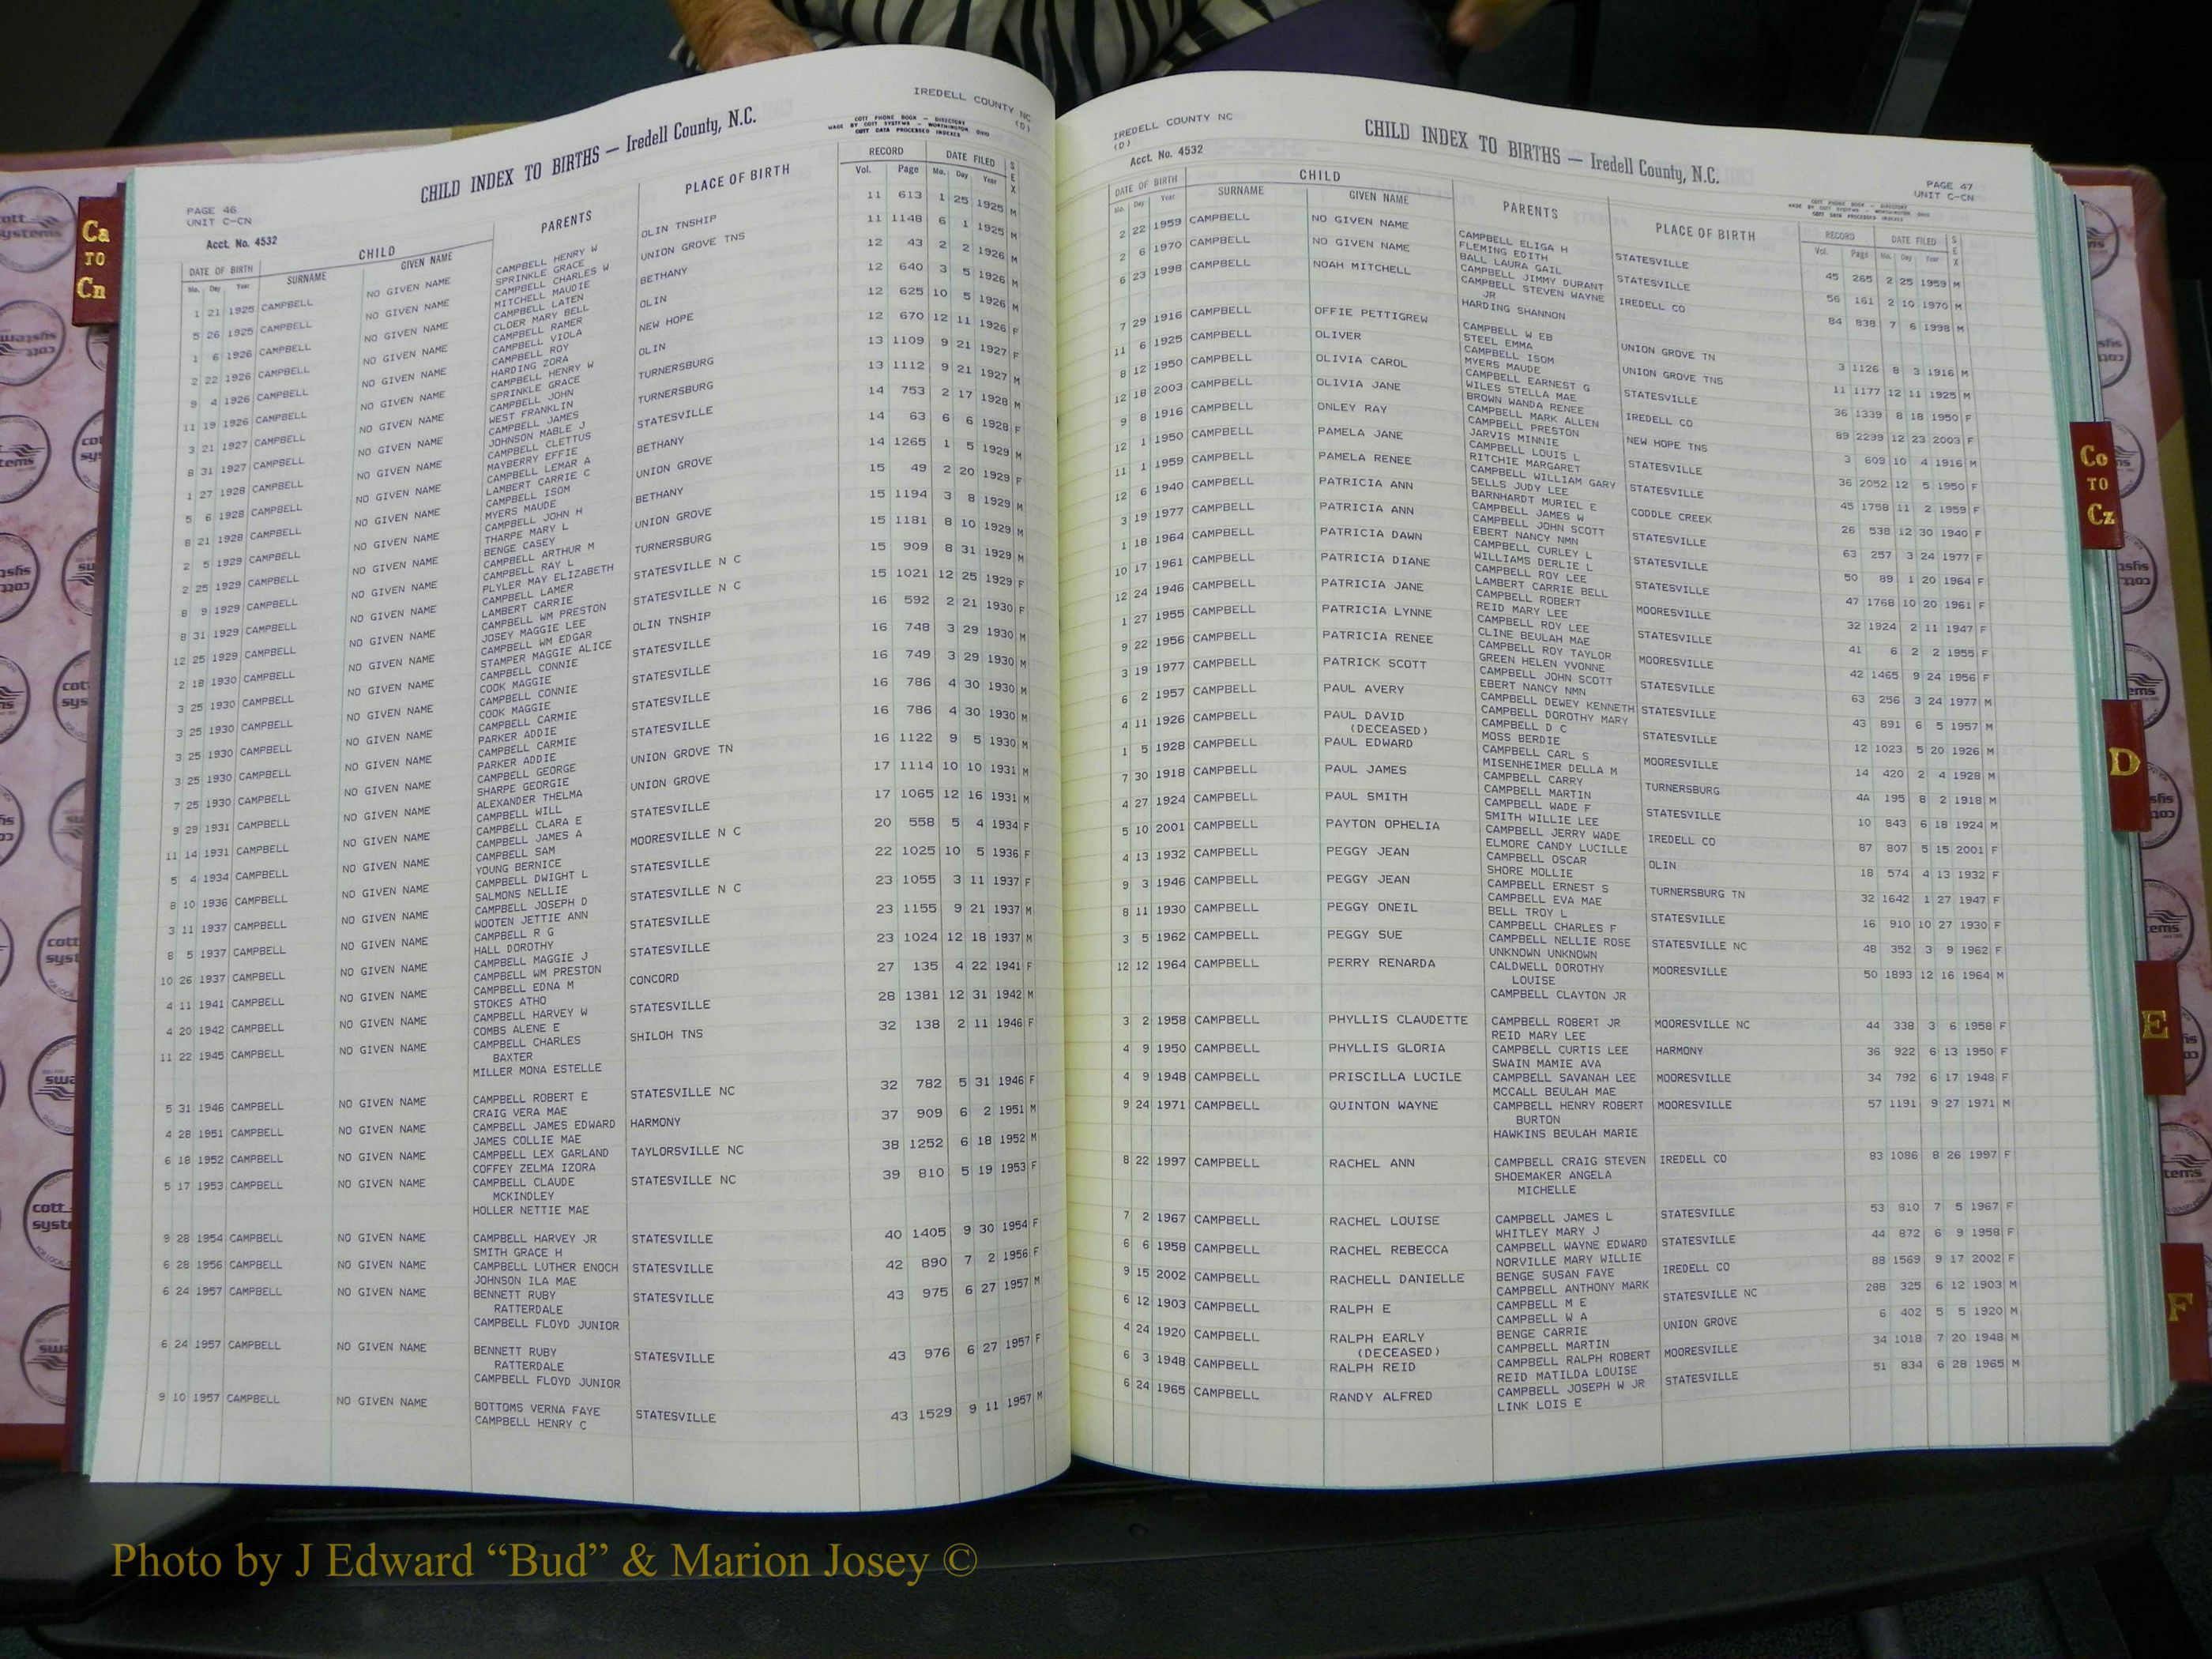 IREDELL COUNTY NC
(D)
CHILD INDEX TO BIRTHS — Iredell County, N.C.
COTT PHONE BOOK — DIRECTORY
MADE BY COTT SYSTEMS — WORTHINGTON, OHIO
COTT DATA PROCESSED INDEXES
PAGE 46
UNIT C-CN
Acct. No. 4532
DATE OF BIRTH CHILD PARENTS PLACE OF BIRTH RECORD DATE FILED SEX
Mo. Day Year SURNAME GIVEN NAME Vol. Page Mo. Day Year
1 21 1925 CAMPBELL NO GIVEN NAME CAMPBELL HENRY W OLIN TNSHIP 11 613 1 25 1925 M
SPRINKLE GRACE
5 26 1925 CAMPBELL NO GIVEN NAME CAMPBELL CHARLES W UNION GROVE TNS 11 1148 6 1 1925 M
MITCHELL MAUDIE
1 6 1926 CAMPBELL NO GIVEN NAME CAMPBELL LATEN BETHANY 12 43 2 2 1926 M
CLOER MARY BELL
2 22 1926 CAMPBELL NO GIVEN NAME CAMPBELL RAMER OLIN 12 640 3 5 1926 M
CAMPBELL VIOLA
9 4 1926 CAMPBELL NO GIVEN NAME CAMPBELL ROY NEW HOPE 12 625 10 5 1926 M
HARDING ZORA
11 19 1926 CAMPBELL NO GIVEN NAME CAMPBELL HENRY W OLIN 12 670 12 11 1926 F
SPRINKLE GRACE
3 21 1927 CAMPBELL NO GIVEN NAME CAMPBELL JOHN TURNERSBURG 13 1109 9 21 1927 F
WEST FRANKLIN
8 31 1927 CAMPBELL NO GIVEN NAME CAMPBELL JAMES TURNERSBURG 13 1112 9 21 1927 M
JOHNSON MABLE J
1 27 1928 CAMPBELL NO GIVEN NAME CAMPBELL CLETTUS STATESVILLE 14 753 2 17 1928 M
MAYBERRY EFFIE
5 6 1928 CAMPBELL NO GIVEN NAME CAMPBELL LEMAR A BETHANY 14 63 6 6 1928 F
LAMBERT CARRIE C
8 21 1928 CAMPBELL NO GIVEN NAME CAMPBELL ISOM UNION GROVE 14 1265 1 5 1929 M
MYERS MAUDE
2 5 1929 CAMPBELL NO GIVEN NAME CAMPBELL JOHN H BETHANY 15 49 2 20 1929 F
THARPE MARY L
2 25 1929 CAMPBELL NO GIVEN NAME BENGE CASEY UNION GROVE 15 1194 3 8 1929 M
CAMPBELL ARTHUR M
8 9 1929 CAMPBELL NO GIVEN NAME CAMPBELL RAY L TURNERSBURG 15 1181 8 10 1929 M
PLYLER MAY ELIZABETH
8 31 1929 CAMPBELL NO GIVEN NAME CAMPBELL LAMER STATESVILLE N C 15 909 8 31 1929 M
LAMBERT CARRIE
12 25 1929 CAMPBELL NO GIVEN NAME CAMPBELL WM PRESTON STATESVILLE N C 15 1021 12 25 1929 F
JOSEY MAGGIE LEE
2 18 1930 CAMPBELL NO GIVEN NAME CAMPBELL WM EDGAR OLIN TNSHIP 16 592 2 21 1930 F
STAMPER MAGGIE ALICE
3 25 1930 CAMPBELL NO GIVEN NAME CAMPBELL CONNIE STATESVILLE 16 748 3 29 1930 M
COOK MAGGIE
3 25 1930 CAMPBELL NO GIVEN NAME CAMPBELL CONNIE STATESVILLE 16 749 3 29 1930 M
COOK MAGGIE
3 25 1930 CAMPBELL NO GIVEN NAME CAMPBELL CARMIE STATESVILLE 16 786 4 30 1930 M
PARKER ADDIE
3 25 1930 CAMPBELL NO GIVEN NAME CAMPBELL CARMIE STATESVILLE 16 786 4 30 1930 M
PARKER ADDIE
7 25 1930 CAMPBELL NO GIVEN NAME CAMPBELL GEORGE UNION GROVE TN 16 1122 9 5 1930 M
SHARPE GEORGIE
9 29 1931 CAMPBELL NO GIVEN NAME ALEXANDER THELMA UNION GROVE 17 1114 10 10 1931 M
CAMPBELL WILL
11 14 1931 CAMPBELL NO GIVEN NAME CAMPBELL CLARA E STATESVILLE 17 1065 12 16 1931 M
CAMPBELL JAMES A
5 4 1934 CAMPBELL NO GIVEN NAME CAMPBELL SAM MOORESVILLE N C 20 558 5 4 1934 F
YOUNG BERNICE
8 10 1936 CAMPBELL NO GIVEN NAME CAMPBELL DWIGHT L STATESVILLE 22 1025 10 5 1936 F
SALMONS NELLIE
3 11 1937 CAMPBELL NO GIVEN NAME CAMPBELL JOSEPH D STATESVILLE N C 23 1055 3 11 1937 F
WOOTEN JETTIE ANN
8 5 1937 CAMPBELL NO GIVEN NAME CAMPBELL R G STATESVILLE 23 1155 9 21 1937 M
HALL DOROTHY
10 26 1937 CAMPBELL NO GIVEN NAME CAMPBELL MAGGIE J STATESVILLE 23 1024 12 18 1937 M
CAMPBELL WM PRESTON
4 11 1941 CAMPBELL NO GIVEN NAME CAMPBELL EDNA M CONCORD 27 135 4 22 1941 F
STOKES ATHO
4 20 1942 CAMPBELL NO GIVEN NAME CAMPBELL HARVEY W STATESVILLE 28 1381 12 31 1942 M
COMBS ALENE E
11 22 1945 CAMPBELL NO GIVEN NAME CAMPBELL CHARLES SHILOH TNS 32 138 2 11 1946 F
BAXTER
MILLER MONA ESTELLE
5 31 1946 CAMPBELL NO GIVEN NAME CAMPBELL ROBERT E STATESVILLE NC 32 782 5 31 1946 F
CRAIG VERA MAE
4 28 1951 CAMPBELL NO GIVEN NAME CAMPBELL JAMES EDWARD HARMONY 37 909 6 2 1951 M
JAMES COLLIE MAE
6 18 1952 CAMPBELL NO GIVEN NAME CAMPBELL LEX GARLAND TAYLORSVILLE NC 38 1252 6 18 1952 M
COFFEY ZELMA IZORA
5 17 1953 CAMPBELL NO GIVEN NAME CAMPBELL CLAUDE STATESVILLE NC 39 810 5 19 1953 F
MCKINDLEY
HOLLER NETTIE MAE
9 28 1954 CAMPBELL NO GIVEN NAME CAMPBELL HARVEY JR STATESVILLE 40 1405 9 30 1954 F
SMITH GRACE H
6 28 1956 CAMPBELL NO GIVEN NAME CAMPBELL LUTHER ENOCH STATESVILLE 42 890 7 2 1956 F
JOHNSON ILA MAE
6 24 1957 CAMPBELL NO GIVEN NAME BENNETT RUBY STATESVILLE 43 975 6 27 1957 M
RATTERDALE
CAMPBELL FLOYD JUNIOR
6 24 1957 CAMPBELL NO GIVEN NAME BENNETT RUBY STATESVILLE 43 976 6 27 1957 F
RATTERDALE
CAMPBELL FLOYD JUNIOR
9 10 1957 CAMPBELL NO GIVEN NAME BOTTOMS VERNA FAYE STATESVILLE 43 1529 9 11 1957 M
CAMPBELL HENRY C
IREDELL COUNTY NC
(D)
Acct. No. 4532
CHILD INDEX TO BIRTHS — Iredell County, N.C.
PAGE 47
UNIT C-CN
COTT PHONE BOOK — DIRECTORY
MADE BY COTT SYSTEMS — WORTHINGTON, OHIO
COTT DATA PROCESSED INDEXES
DATE OF BIRTH CHILD PARENTS PLACE OF BIRTH RECORD DATE FILED SEX
Mo. Day Year SURNAME GIVEN NAME Vol. Page Mo. Day Year
2 22 1959 CAMPBELL NO GIVEN NAME CAMPBELL ELIGA H STATESVILLE 45 265 2 25 1959 M
FLEMING EDITH
2 6 1970 CAMPBELL NO GIVEN NAME BALL LAURA GAIL STATESVILLE 56 161 2 10 1970 M
CAMPBELL JIMMY DURANT
6 23 1998 CAMPBELL NOAH MITCHELL CAMPBELL STEVEN WAYNE IREDELL CO 84 838 7 6 1998 M
JR
HARDING SHANNON
7 29 1916 CAMPBELL OFFIE PETTIGREW CAMPBELL W EB UNION GROVE TN 3 1126 8 3 1916 M
STEEL EMMA
11 6 1925 CAMPBELL OLIVER CAMPBELL ISOM UNION GROVE TNS 11 1177 12 11 1925 M
MYERS MAUDE
8 12 1950 CAMPBELL OLIVIA CAROL CAMPBELL EARNEST G STATESVILLE 36 1339 8 18 1950 F
WILES STELLA MAE
12 18 2003 CAMPBELL OLIVIA JANE BROWN WANDA RENEE IREDELL CO 89 2299 12 23 2003 F
CAMPBELL MARK ALLEN
9 8 1916 CAMPBELL ONLEY RAY CAMPBELL PRESTON NEW HOPE TNS 3 609 10 4 1916 M
JARVIS MINNIE
12 1 1950 CAMPBELL PAMELA JANE CAMPBELL LOUIS L STATESVILLE 36 2052 12 5 1950 F
RITCHIE MARGARET
11 1 1959 CAMPBELL PAMELA RENEE CAMPBELL WILLIAM GARY STATESVILLE 45 1758 11 2 1959 F
SELLS JUDY LEE
12 6 1940 CAMPBELL PATRICIA ANN BARNHARDT MURIEL E CODDLE CREEK 26 538 12 30 1940 F
CAMPBELL JAMES W
3 19 1977 CAMPBELL PATRICIA ANN CAMPBELL JOHN SCOTT STATESVILLE 63 257 3 24 1977 F
EBERT NANCY NMN
1 18 1964 CAMPBELL PATRICIA DAWN CAMPBELL CURLEY L STATESVILLE 50 89 1 20 1964 F
WILLIAMS DERLIE L
10 17 1961 CAMPBELL PATRICIA DIANE CAMPBELL ROY LEE STATESVILLE 47 1768 10 20 1961 F
LAMBERT CARRIE BELL
12 24 1946 CAMPBELL PATRICIA JANE CAMPBELL ROBERT MOORESVILLE 32 1924 2 11 1947 F
REID MARY LEE
1 27 1955 CAMPBELL PATRICIA LYNNE CAMPBELL ROY LEE STATESVILLE 41 6 2 2 1955 F
CLINE BEULAH MAE
9 22 1956 CAMPBELL PATRICIA RENEE CAMPBELL ROY TAYLOR MOORESVILLE 42 1465 9 24 1956 F
GREEN HELEN YVONNE
3 19 1977 CAMPBELL PATRICK SCOTT CAMPBELL JOHN SCOTT STATESVILLE 63 256 3 24 1977 M
EBERT NANCY NMN
6 2 1957 CAMPBELL PAUL AVERY CAMPBELL DEWEY KENNETH STATESVILLE 43 891 6 5 1957 M
CAMPBELL DOROTHY MARY
4 11 1926 CAMPBELL PAUL DAVID CAMPBELL D C STATESVILLE 12 1023 5 20 1926 M
(DECEASED) MOSS BERDIE
1 5 1928 CAMPBELL PAUL EDWARD CAMPBELL CARL S MOORESVILLE 14 420 2 4 1928 M
MISENHEIMER DELLA M
7 30 1918 CAMPBELL PAUL JAMES CAMPBELL CARRY TURNERSBURG 4A 195 8 2 1918 M
CAMPBELL MARTIN
4 27 1924 CAMPBELL PAUL SMITH CAMPBELL WADE F STATESVILLE 10 843 6 18 1924 M
SMITH WILLIE LEE
5 10 2001 CAMPBELL PAYTON OPHELIA CAMPBELL JERRY WADE IREDELL CO 87 807 5 15 2001 F
ELMORE CANDY LUCILLE
4 13 1932 CAMPBELL PEGGY JEAN CAMPBELL OSCAR OLIN 18 574 4 13 1932 F
SHORE MOLLIE
9 3 1946 CAMPBELL PEGGY JEAN CAMPBELL ERNEST S TURNERSBURG TN 32 1642 1 27 1947 F
CAMPBELL EVA MAE
8 11 1930 CAMPBELL PEGGY ONEIL BELL TROY L STATESVILLE 16 910 10 27 1930 F
CAMPBELL CHARLES F
3 5 1962 CAMPBELL PEGGY SUE CAMPBELL NELLIE ROSE STATESVILLE NC 48 352 3 9 1962 F
UNKNOWN UNKNOWN
12 12 1964 CAMPBELL PERRY RENARDA CALDWELL DOROTHY MOORESVILLE 50 1893 12 16 1964 M
LOUISE
CAMPBELL CLAYTON JR
3 2 1958 CAMPBELL PHYLLIS CLAUDETTE CAMPBELL ROBERT JR MOORESVILLE NC 44 338 3 6 1958 F
REID MARY LEE
4 9 1950 CAMPBELL PHYLLIS GLORIA CAMPBELL CURTIS LEE HARMONY 36 922 6 13 1950 F
SWAIN MAMIE AVA
4 9 1948 CAMPBELL PRISCILLA LUCILE CAMPBELL SAVANAH LEE MOORESVILLE 34 792 6 17 1948 F
MCCALL BEULAH MAE
9 24 1971 CAMPBELL QUINTON WAYNE CAMPBELL HENRY ROBERT MOORESVILLE 57 1191 9 27 1971 M
BURTON
HAWKINS BEULAH MARIE
8 22 1997 CAMPBELL RACHEL ANN CAMPBELL CRAIG STEVEN IREDELL CO 83 1086 8 26 1997 F
SHOEMAKER ANGELA
MICHELLE
7 2 1967 CAMPBELL RACHEL LOUISE CAMPBELL JAMES L STATESVILLE 53 810 7 5 1967 F
WHITLEY MARY J
6 6 1958 CAMPBELL RACHEL REBECCA CAMPBELL WAYNE EDWARD STATESVILLE 44 872 6 9 1958 F
NORVILLE MARY WILLIE
9 15 2002 CAMPBELL RACHELL DANIELLE BENGE SUSAN FAYE IREDELL CO 88 1569 9 17 2002 F
CAMPBELL ANTHONY MARK
6 12 1903 CAMPBELL RALPH E CAMPBELL M E STATESVILLE NC 28B 325 6 12 1903 M
CAMPBELL W A
4 24 1920 CAMPBELL RALPH EARLY BENGE CARRIE UNION GROVE 6 402 5 5 1920 M
(DECEASED) CAMPBELL MARTIN
6 3 1948 CAMPBELL RALPH REID CAMPBELL RALPH ROBERT MOORESVILLE 34 1018 7 20 1948 M
REID MATILDA LOUISE
6 24 1965 CAMPBELL RANDY ALFRED CAMPBELL JOSEPH W JR STATESVILLE 51 834 6 28 1965 M
LINK LOIS E
Ca
TO
Cn
Co
TO
Cz
D
E
F
cott
systems
Photo by J Edward “Bud” & Marion Josey ©